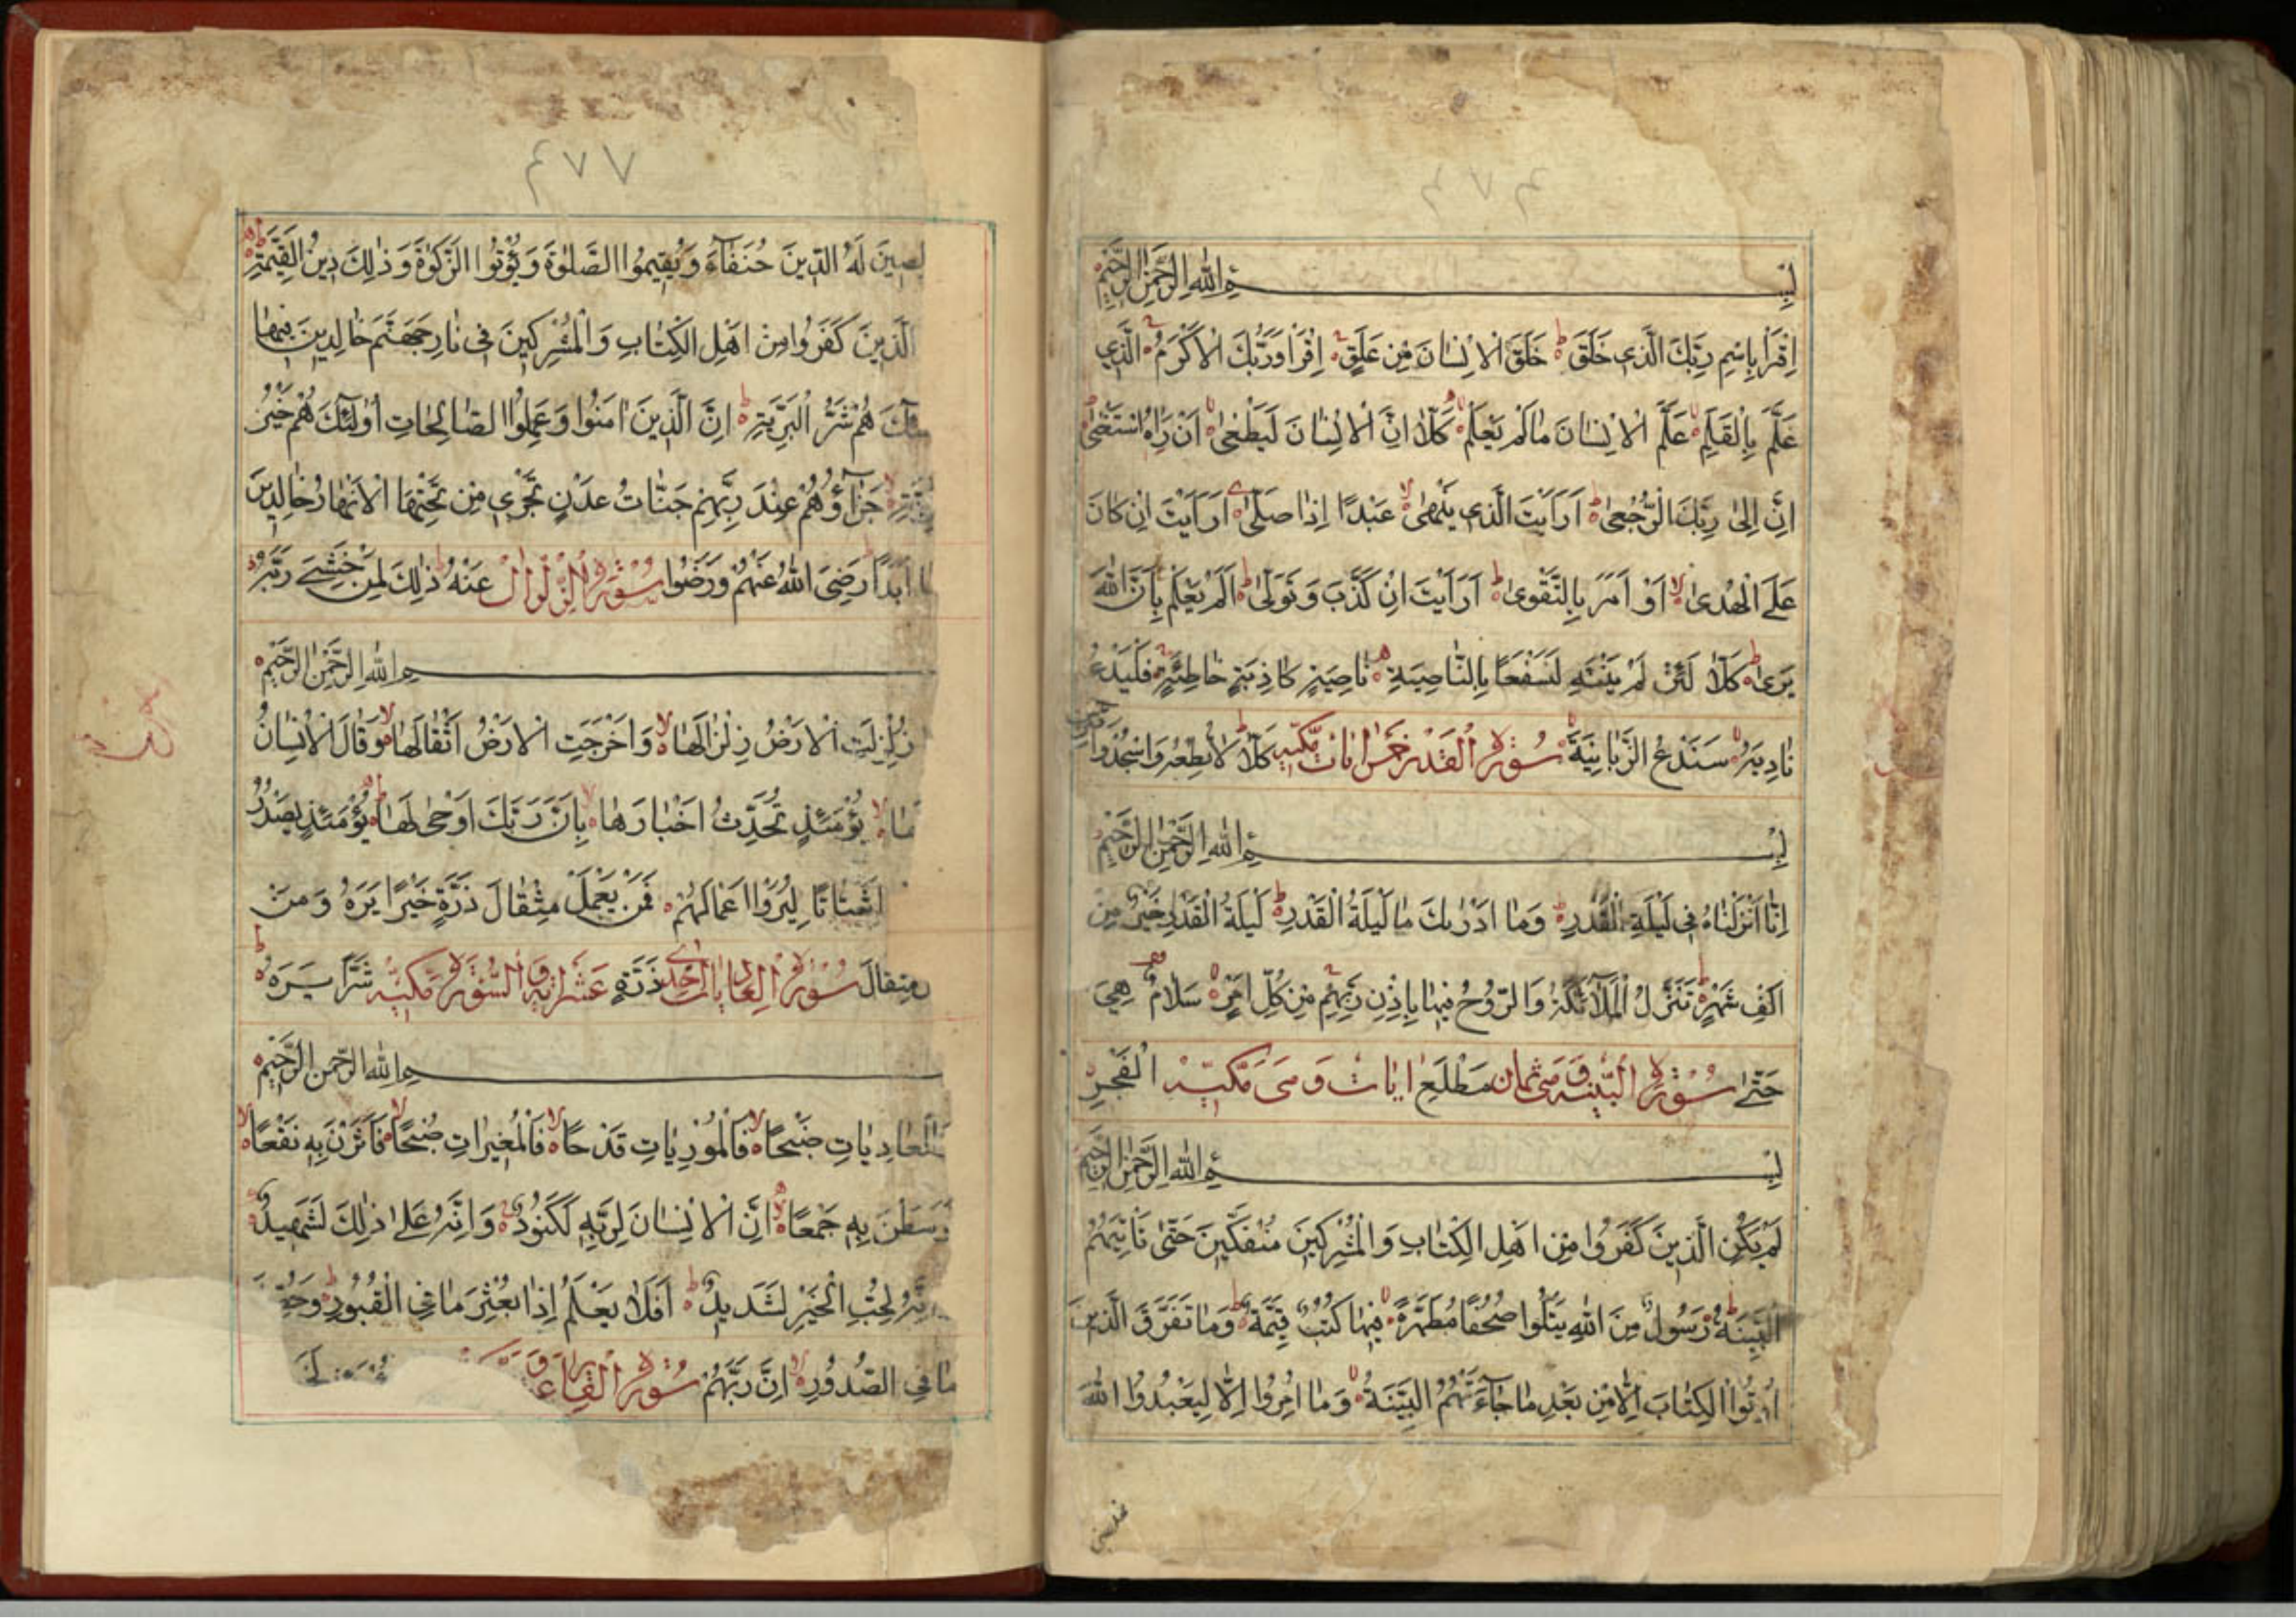 ۴۷۶
بِسْمِ اللهِ الرَّحْمٰنِ الرَّحِيْمِ
اِقْرَأْ بِاسْمِ رَبِّكَ الَّذِي خَلَقَ ط خَلَقَ الْاِنْسَانَ مِنْ عَلَقٍ اِقْرَأْ وَرَبُّكَ الْاَكْرَمُ الَّذِي
عَلَّمَ بِالْقَلَمِ لا عَلَّمَ الْاِنْسَانَ مَا لَمْ يَعْلَمْ كَلَّا اِنَّ الْاِنْسَانَ لَيَطْغٰى لا اَنْ رَاٰهُ اسْتَغْنٰى
اِنَّ اِلٰى رَبِّكَ الرُّجْعٰى ط اَرَاَيْتَ الَّذِي يَنْهٰى لا عَبْدًا اِذَا صَلّٰى اَرَاَيْتَ اِنْ كَانَ
عَلَى الْهُدٰى لا اَوْ اَمَرَ بِالتَّقْوٰى ط اَرَاَيْتَ اِنْ كَذَّبَ وَتَوَلّٰى ط اَلَمْ يَعْلَمْ بِاَنَّ اللهَ
يَرٰى ط كَلَّا لَئِنْ لَمْ يَنْتَهِ لَنَسْفَعًا بِالنَّاصِيَةِ نَاصِيَةٍ كَاذِبَةٍ خَاطِئَةٍ فَلْيَدْعُ
نَادِيَهُ سَنَدْعُ الزَّبَانِيَةَ سُوْرَةُ الْقَدْرِ خَمْسُ اٰيَاتٍ مَكِّيَّةٌ كَلَّا لَا تُطِعْهُ وَاسْجُدْ وَاقْتَرِبْ
بِسْمِ اللهِ الرَّحْمٰنِ الرَّحِيْمِ
اِنَّا اَنْزَلْنَاهُ فِي لَيْلَةِ الْقَدْرِ وَمَا اَدْرٰىكَ مَا لَيْلَةُ الْقَدْرِ ط لَيْلَةُ الْقَدْرِ خَيْرٌ مِنْ
اَلْفِ شَهْرٍ تَنَزَّلُ الْمَلٰٓئِكَةُ وَالرُّوْحُ فِيْهَا بِاِذْنِ رَبِّهِمْ مِنْ كُلِّ اَمْرٍ سَلَامٌ هِيَ
حَتّٰى سُوْرَةُ الْبَيِّنَةِ وَهِيَ ثَمَانُ مَطْلَعِ اٰيَاتٍ وَهِيَ مَكِّيَّةٌ الْفَجْرِ
بِسْمِ اللهِ الرَّحْمٰنِ الرَّحِيْمِ
لَمْ يَكُنِ الَّذِيْنَ كَفَرُوْا مِنْ اَهْلِ الْكِتَابِ وَالْمُشْرِكِيْنَ مُنْفَكِّيْنَ حَتّٰى تَأْتِيَهُمُ
الْبَيِّنَةُ رَسُوْلٌ مِنَ اللهِ يَتْلُوْا صُحُفًا مُطَهَّرَةً فِيْهَا كُتُبٌ قَيِّمَةٌ ط وَمَا تَفَرَّقَ الَّذِيْنَ
اُوْتُوا الْكِتَابَ اِلَّا مِنْ بَعْدِ مَا جَآءَتْهُمُ الْبَيِّنَةُ وَمَا اُمِرُوْا اِلَّا لِيَعْبُدُوا اللهَ
۴۷۷
لِصِيْنَ لَهُ الدِّيْنَ حُنَفَآءَ وَيُقِيْمُوا الصَّلٰوةَ وَيُؤْتُوا الزَّكٰوةَ وَذٰلِكَ دِيْنُ الْقَيِّمَةِ
الَّذِيْنَ كَفَرُوْا مِنْ اَهْلِ الْكِتَابِ وَالْمُشْرِكِيْنَ فِي نَارِ جَهَنَّمَ خَالِدِيْنَ فِيْهَا
ئِكَ هُمْ شَرُّ الْبَرِيَّةِ ط اِنَّ الَّذِيْنَ اٰمَنُوْا وَعَمِلُوا الصَّالِحَاتِ اُولٰٓئِكَ هُمْ خَيْرُ
يَّةِ جَزَآؤُهُمْ عِنْدَ رَبِّهِمْ جَنَّاتُ عَدْنٍ تَجْرِي مِنْ تَحْتِهَا الْاَنْهَارُ خَالِدِيْنَ
ا اَبَدًا رَضِيَ اللهُ عَنْهُمْ وَرَضُوْا سُوْرَةُ الزِّلْزَالِ عَنْهُ ذٰلِكَ لِمَنْ خَشِيَ رَبَّهُ
مِ اللهِ الرَّحْمٰنِ الرَّحِيْمِ
زُلْزِلَتِ الْاَرْضُ زِلْزَالَهَا لا وَاَخْرَجَتِ الْاَرْضُ اَثْقَالَهَا لا وَقَالَ الْاِنْسَانُ
مَا لَهَا يَوْمَئِذٍ تُحَدِّثُ اَخْبَارَهَا بِاَنَّ رَبَّكَ اَوْحٰى لَهَا يَوْمَئِذٍ يَصْدُرُ
اَشْتَاتًا لِيُرَوْا اَعْمَالَهُمْ فَمَنْ يَعْمَلْ مِثْقَالَ ذَرَّةٍ خَيْرًا يَرَهُ وَمَنْ
مِثْقَالَ سُوْرَةُ الْعَادِيَاتِ اِحْدٰى ذَرَّةٍ عَشَرَ اٰيَةً السُّوْرَةُ مَكِّيَّةٌ شَرًّا يَرَهُ ط
مِ اللهِ الرَّحْمٰنِ الرَّحِيْمِ
الْعَادِيَاتِ ضَبْحًا لا فَالْمُوْرِيَاتِ قَدْحًا لا فَالْمُغِيْرَاتِ صُبْحًا لا فَاَثَرْنَ بِهِ نَقْعًا لا
وَسَطْنَ بِهِ جَمْعًا لا اِنَّ الْاِنْسَانَ لِرَبِّهِ لَكَنُوْدٌ وَاِنَّهُ عَلٰى ذٰلِكَ لَشَهِيْدٌ
نَّهُ لِحُبِّ الْخَيْرِ لَشَدِيْدٌ ط اَفَلَا يَعْلَمُ اِذَا بُعْثِرَ مَا فِي الْقُبُوْرِ وَحُصِّ
مَا فِي الصُّدُوْرِ لا اِنَّ رَبَّهُمْ سُوْرَةُ الْقَارِعَ